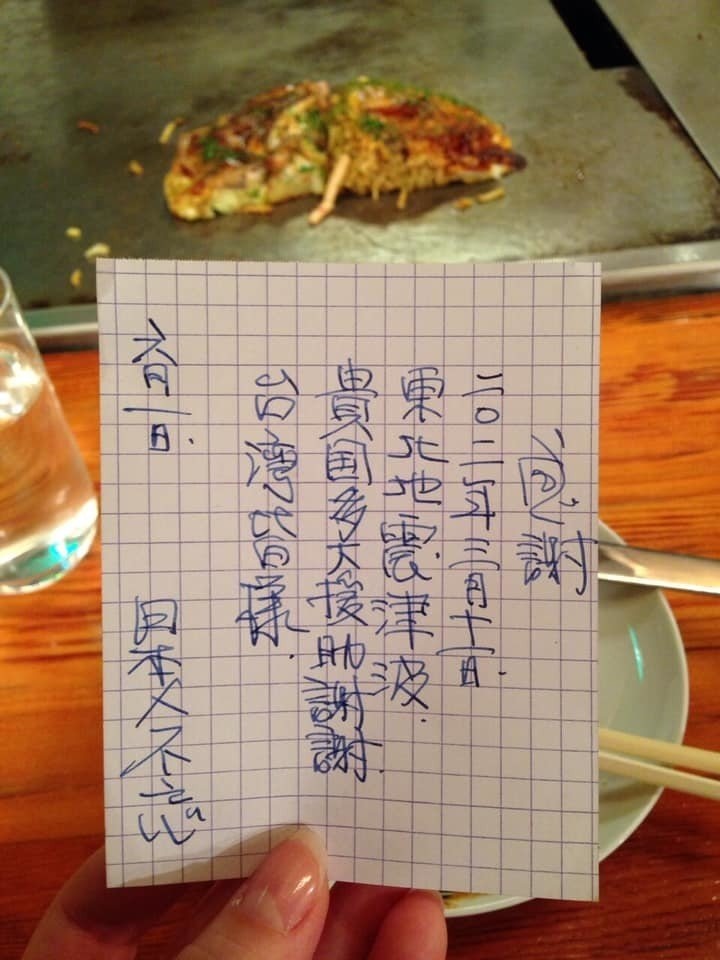 感謝
二〇一一年三月十一日.
東北地震津波.
貴国多大援助謝謝
六月一日 日本人不